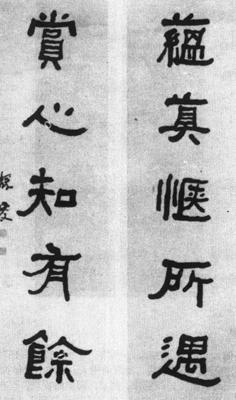 蘊真愜所遇
賞心知有餘